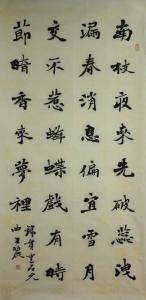 南枝夜來先破蕊洩
漏春消息偏宜雪月
交不惹蜂蝶戲有時
節暗香來夢裡
雲石元
曲王